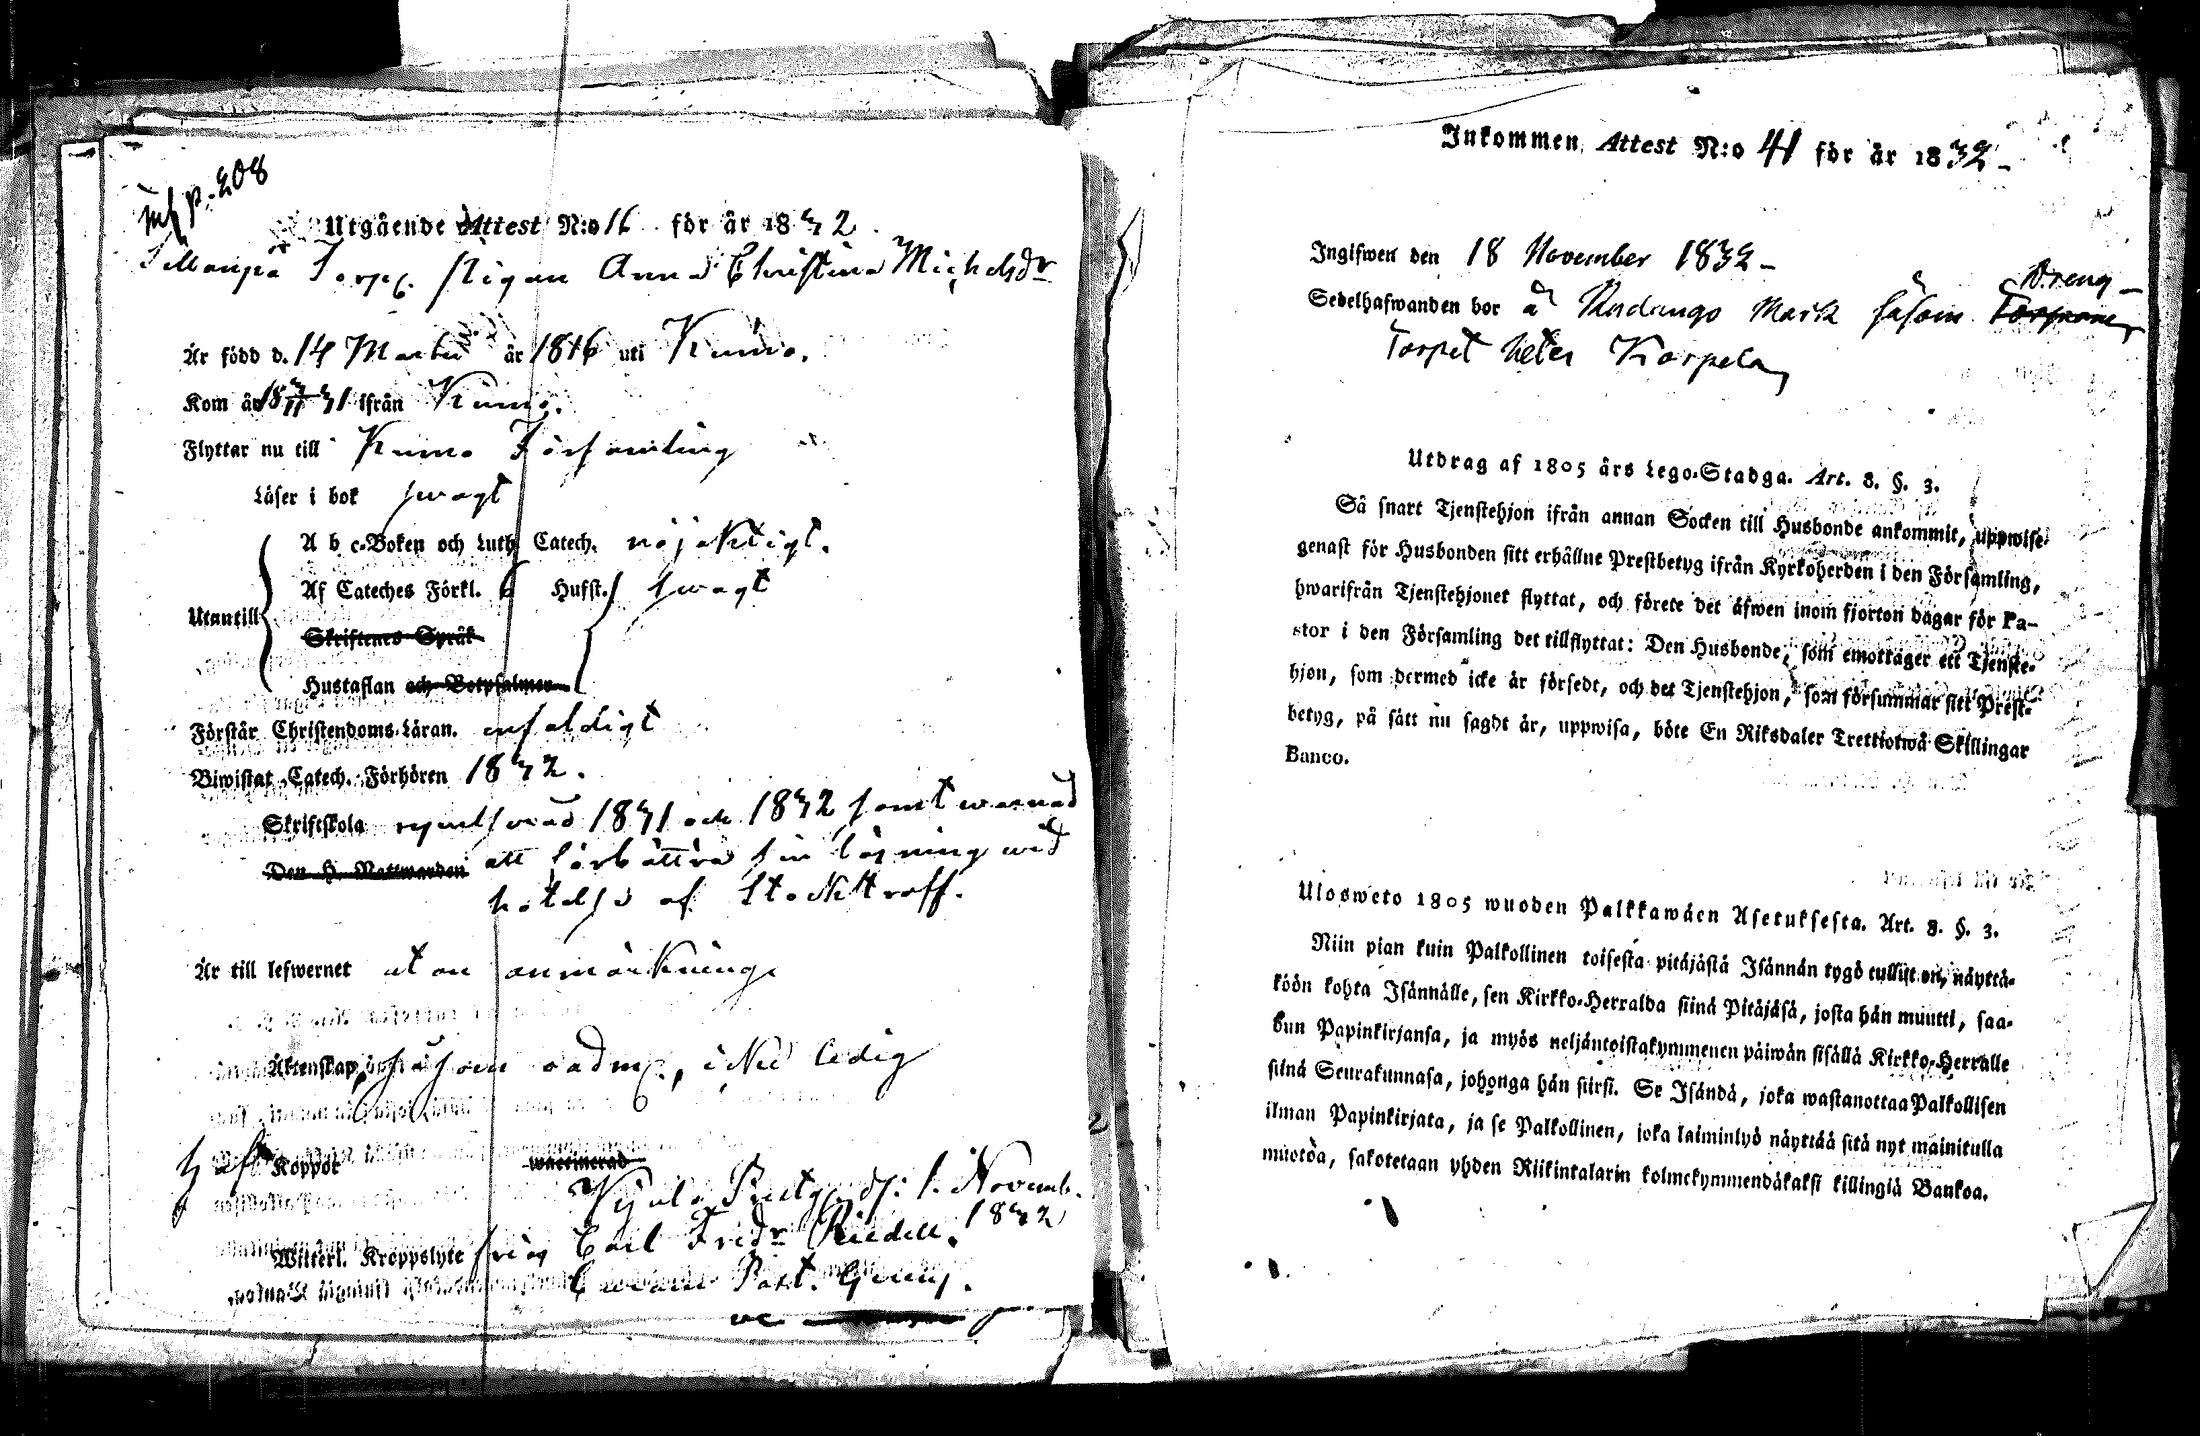 p. 208
Utgående Attest N:o 16 för år 1832.
Torp. pigan Anna Christina Michelsdr
Är född d. 14 Martii år 1816 uti Kumo.
Kom år 18 31 ifrån Kumo.
Flyttar nu till Kumo Församling
Läser i bok swagt
Utantill
A b c-Boken och Luth. Catech. nöjaktigt.
Af Cateches Förkl. 6 Hufst. swagt
Skriftenes Språk
Hustaflan och Botpsalmer
Förstår Christendoms-Läran. enfaldigt
Biwistat Catech. Förhören 1832.
Skriftskola 1831 och 1832 samt warnad
Den H. Nattwarden att förbättra sin läsning wid
hotelse af Stockstraff.
Är till lefwernet utan anmärkning
Äktenskap såsom ledig
haft Koppor waccinerad
d. 1. Novemb.
1832
Witterl. Kroppslyte fri Carl Fredr Riedell.
Past.
Inkommen Attest N:o 41 för år 1832
Ingifwen den 18 November 1832
Dreng
Sedelhafwanden bor å Mark såsom
Torpet heter Korpela
Utdrag af 1805 års Lego-Stadga. Art. 8. §. 3.
Så snart Tjenstehjon ifrån annan Socken till Husbonde ankommit, uppwise
genast för Husbonden sitt erhållne Prestbetyg ifrån Kyrkoherden i den Församling,
hwarifrån Tjenstehjonet flyttat, och förete det äfwen inom fjorton dagar för Pa-
stor i den Församling det tillflyttat: Den Husbonde, som emottager ett Tjenste-
hjon, som dermed icke är försedt, och det Tjenstehjon, som försummar sitt Prest-
betyg, på sätt nu sagdt är, uppwisa, böte En Riksdaler Trettiotwå Skillingar
Banco.
Ulosweto 1805 wuoden Palkkawäen Asetuksesta. Art. 8. §. 3.
Niin pian kuin Palkollinen toisesta pitäjästä Isännän tygö tullut on, näyttä-
köön kohta Isännälle, sen Kirkko-Herralda siinä Pitäjäsä, josta hän muutti, saa-
dun Papinkirjansa, ja myös neljäntoistakymmenen päiwän sisällä Kirkko-Herralle
siinä Seurakunnasa, johonga hän siirsi. Se Isändä, joka wastanottaa Palkollisen
ilman Papinkirjata, ja se Palkollinen, joka laiminlyö näyttää sitä nyt mainitulla
muotoa, sakotetaan yhden Riikintalarin kolmekymmendäkaksi killingiä Bankoa.